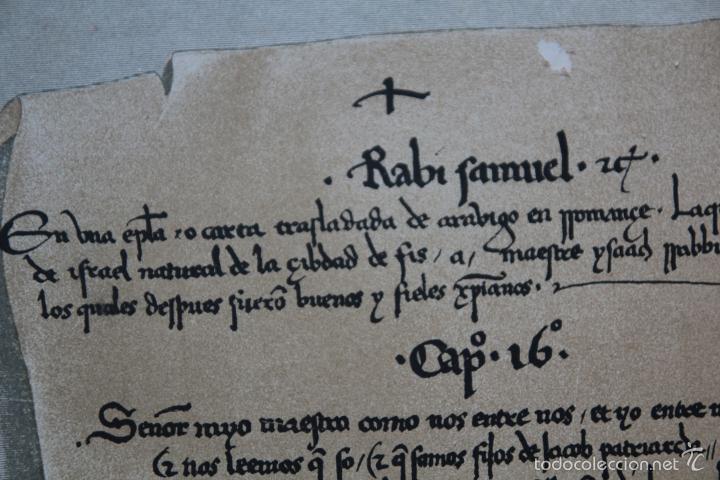 · Rabi samuel · rct.
En una epła o carta trasladada de arabigo en rromançe. Laq
de israel natural de la çibdad de fis / a / maestre ysaach rrabbi
los quales despues fuerō buenos y fieles xp̄ianos ·
· Capº · 16º ·
Señor myo maestro como nos entre nos / et yo entre
nos leemos q̄ so / q̄ somos fijos de Jacob patriarcha
todocoleccion
todocoleccion.net